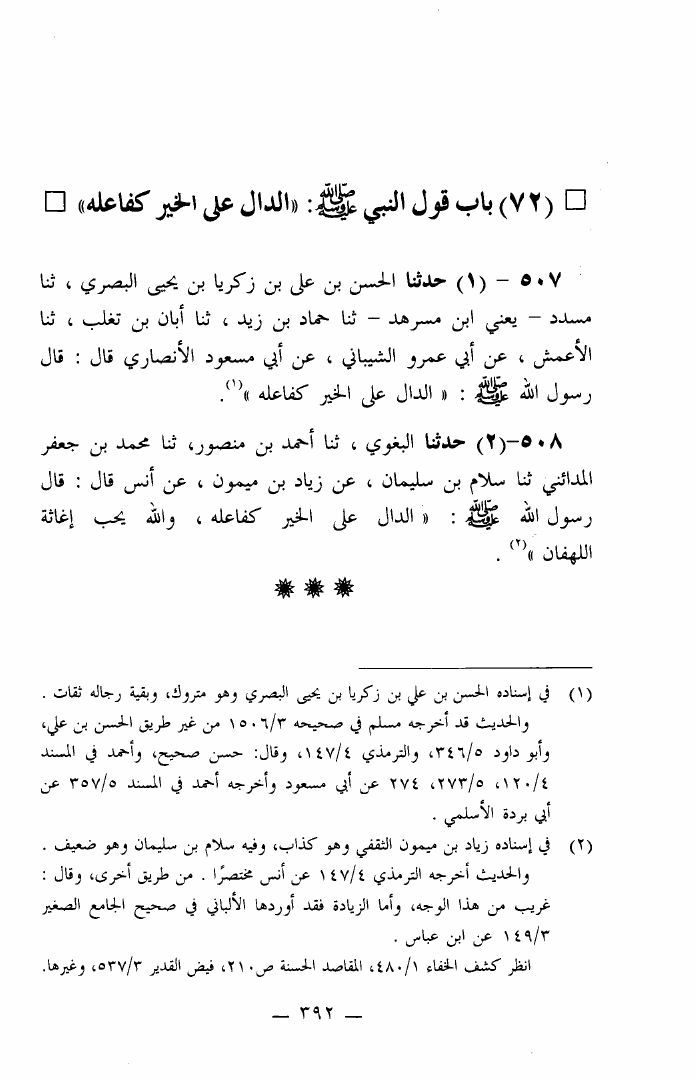 □ (٧٢) باب قول النبي ﷺ: «الدال على الخير كفاعله» □
٥٠٧ – (١) حدثنا الحسن بن علي بن زكريا بن يحيى البصري ، ثنا
مسدد – يعني ابن مسرهد – ثنا حماد بن زيد ، ثنا أبان بن تغلب ، ثنا
الأعمش ، عن أبي عمرو الشيباني ، عن أبي مسعود الأنصاري قال : قال
رسول الله ﷺ : « الدال على الخير كفاعله »(١).
٥٠٨–(٢) حدثنا البغوي ، ثنا أحمد بن منصور، ثنا محمد بن جعفر
المدائني ثنا سلام بن سليمان ، عن زياد بن ميمون ، عن أنس قال : قال
رسول الله ﷺ : « الدال على الخير كفاعله ، والله يحب إغاثة
اللهفان »(٢) .
(١) في إسناده الحسن بن علي بن زكريا بن يحيى البصري وهو متروك، وبقية رجاله ثقات .
والحديث قد أخرجه مسلم في صحيحه ١٥٠٦/٣ من غير طريق الحسن بن علي،
وأبو داود ٣٤٦/٥، والترمذي ١٤٧/٤، وقال: حسن صحيح، وأحمد في المسند
١٢٠/٤، ٢٧٣/٥، ٢٧٤ عن أبي مسعود وأخرجه أحمد في المسند ٣٥٧/٥ عن
أبي بردة الأسلمي .
(٢) في إسناده زياد بن ميمون الثقفي وهو كذاب، وفيه سلام بن سليمان وهو ضعيف .
والحديث أخرجه الترمذي ١٤٧/٤ عن أنس مختصرًا . من طريق أخرى، وقال :
غريب من هذا الوجه، وأما الزيادة فقد أوردها الألباني في صحيح الجامع الصغير
١٤٩/٣ عن ابن عباس .
انظر كشف الخفاء ٤٨٠/١، المقاصد الحسنة ص٢١٠، فيض القدير ٥٣٧/٣، وغيرها.
— ٣٩٢ —